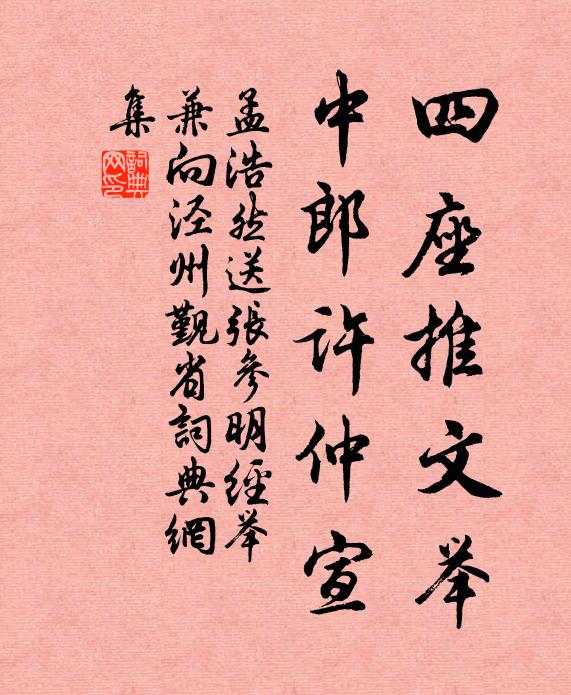 四座推文举
中郎许仲宣
孟浩然送張參明經举
兼向泾州覲省詞典網
集
詞典网印